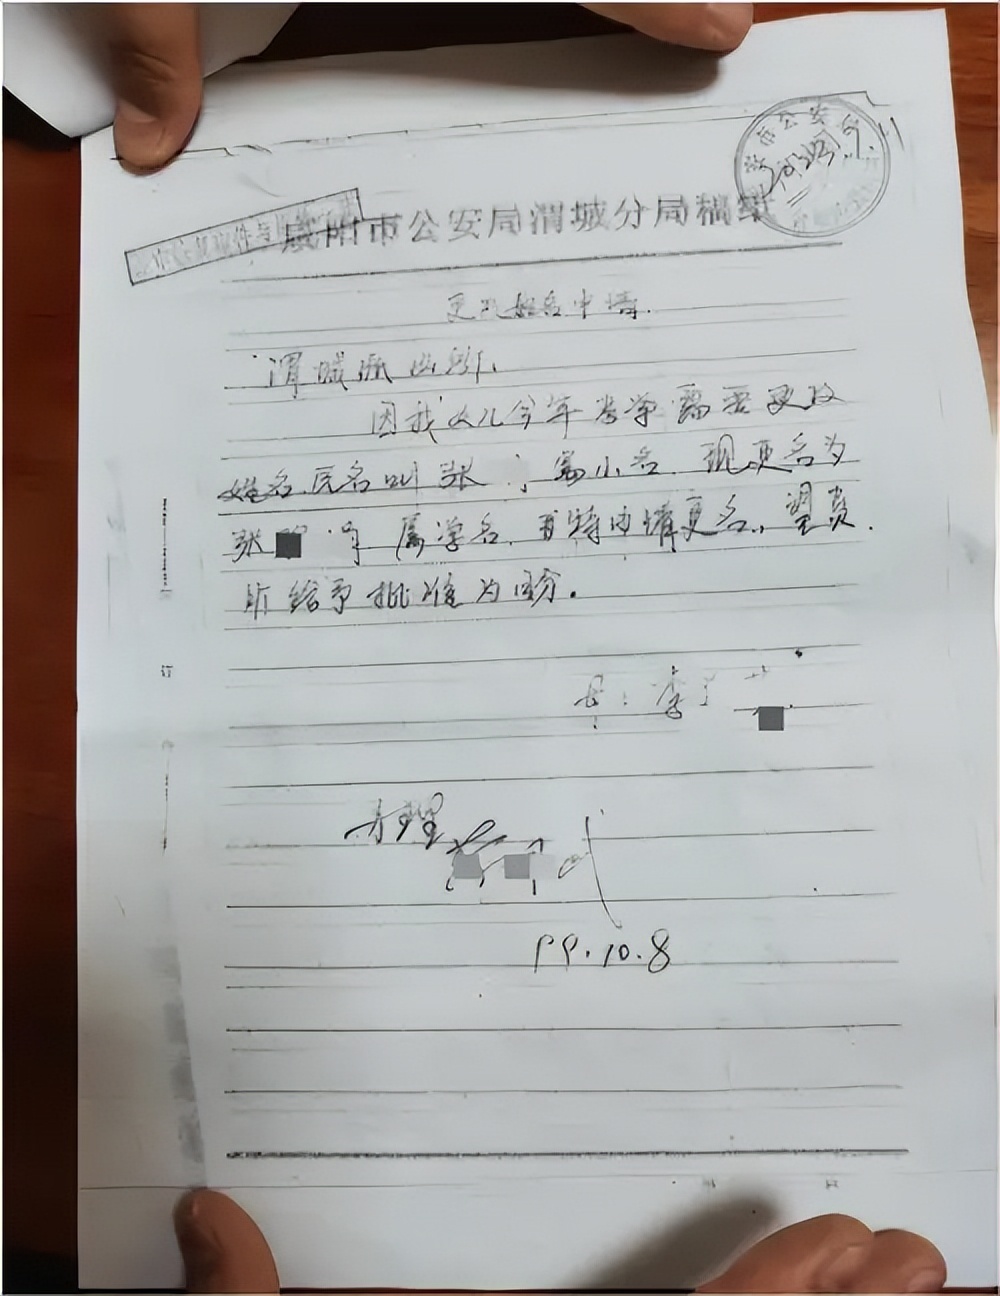 咸阳市公安局渭城分局稿纸
更改姓名申请.
渭城派出所.
因我女儿今年考学需要更改
姓名.原名叫张 属小名.现更名为
张 属学名.我特申请更名.望贵
所给予批准为盼.
母:李
99.10.8